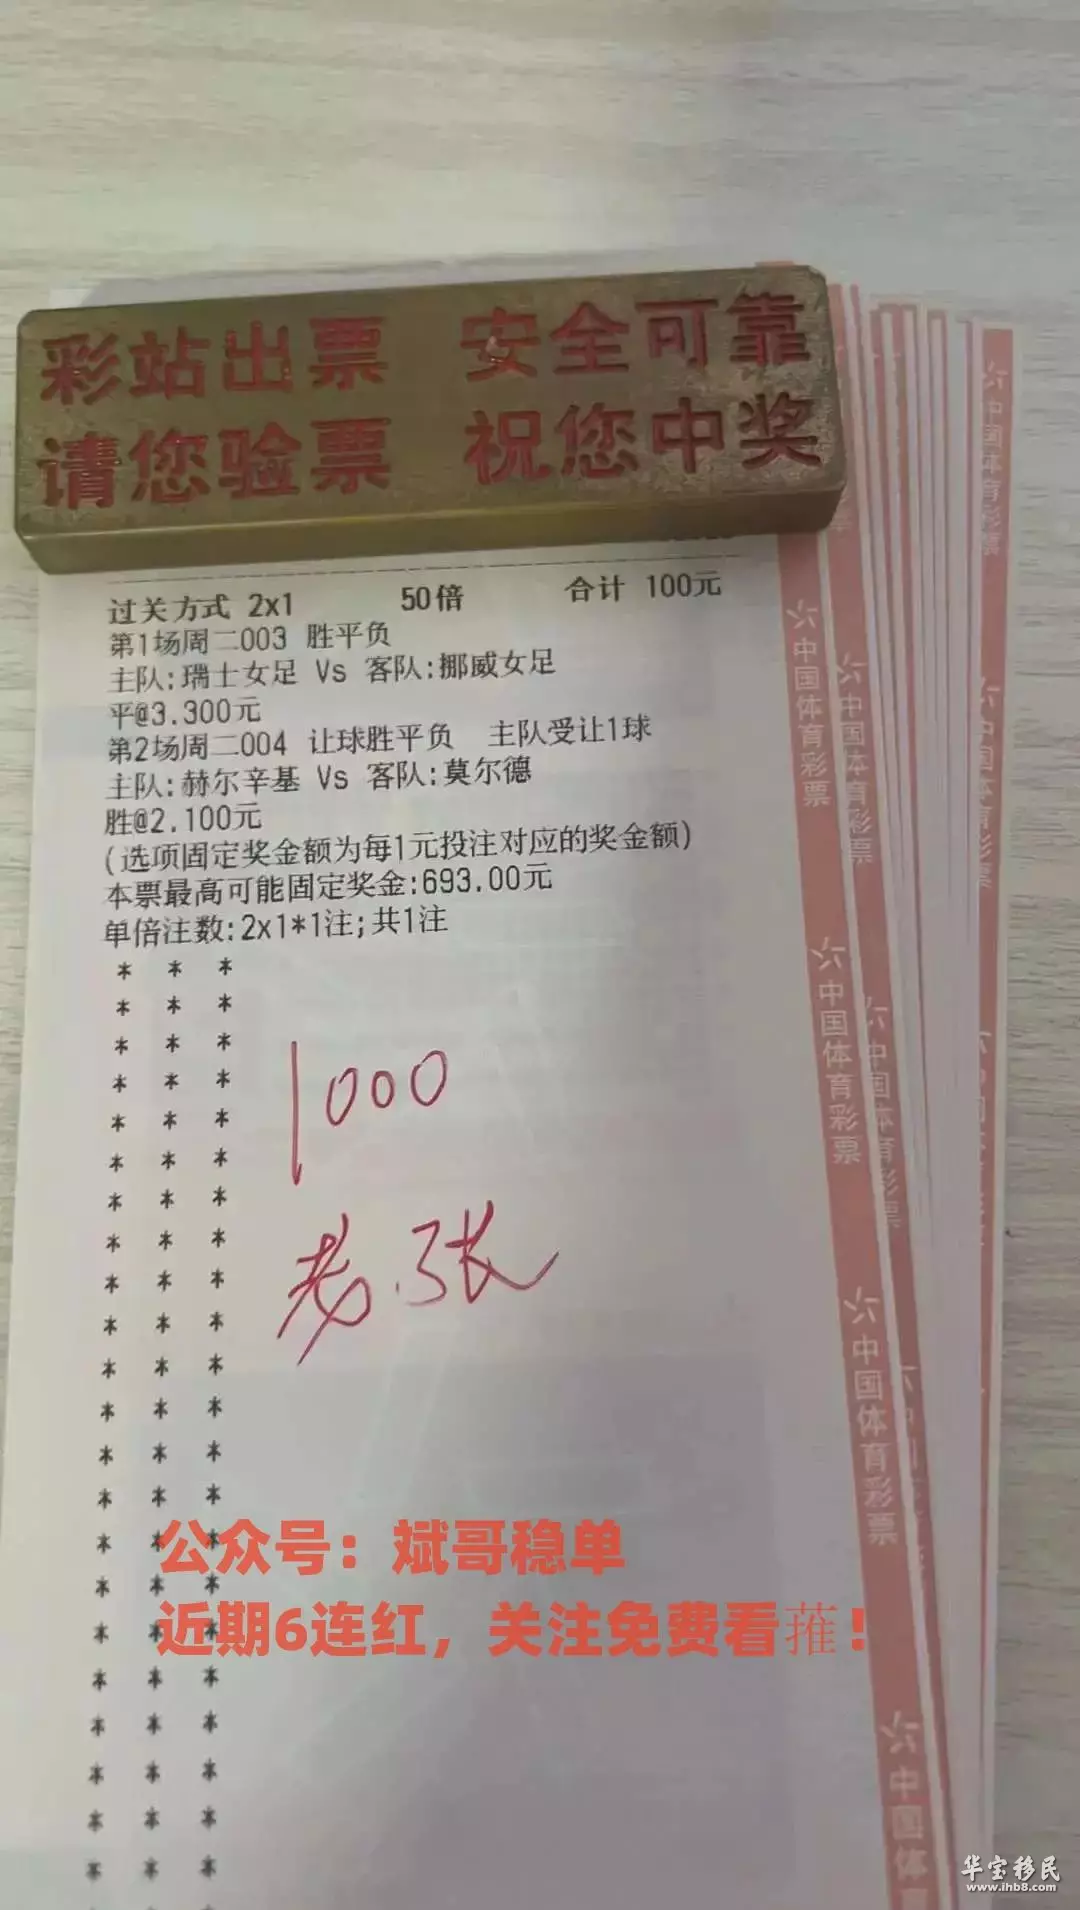 彩站出票 安全可靠
请您验票 祝您中奖
过关方式 2x1 50倍 合计 100元
第1场周二003 胜平负
主队:瑞士女足 Vs 客队:挪威女足
平@3.300元
第2场周二004 让球胜平负 主队受让1球
主队:赫尔辛基 Vs 客队:莫尔德
胜@2.100元
(选项固定奖金额为每1元投注对应的奖金额)
本票最高可能固定奖金:693.00元
单倍注数:2x1*1注;共1注
1000
老张
公众号：斌哥稳单
近期6连红，关注免费看蓷！
中国体育彩票
中国体育彩票
中国体育彩票
中国体
中国体育彩票
中国体育彩票
中国体育彩票
中国体育彩票
华宝移民
www.ihb8.com